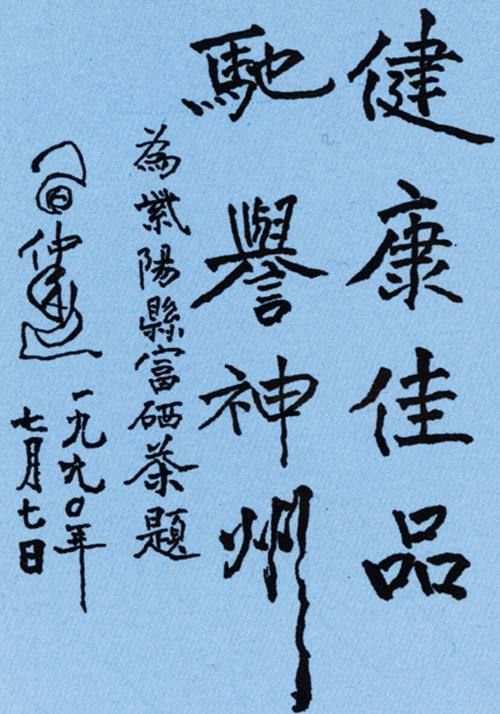 健康佳品
馳譽神州
為紫陽縣富硒茶題
仲
一九九〇年
七月七日